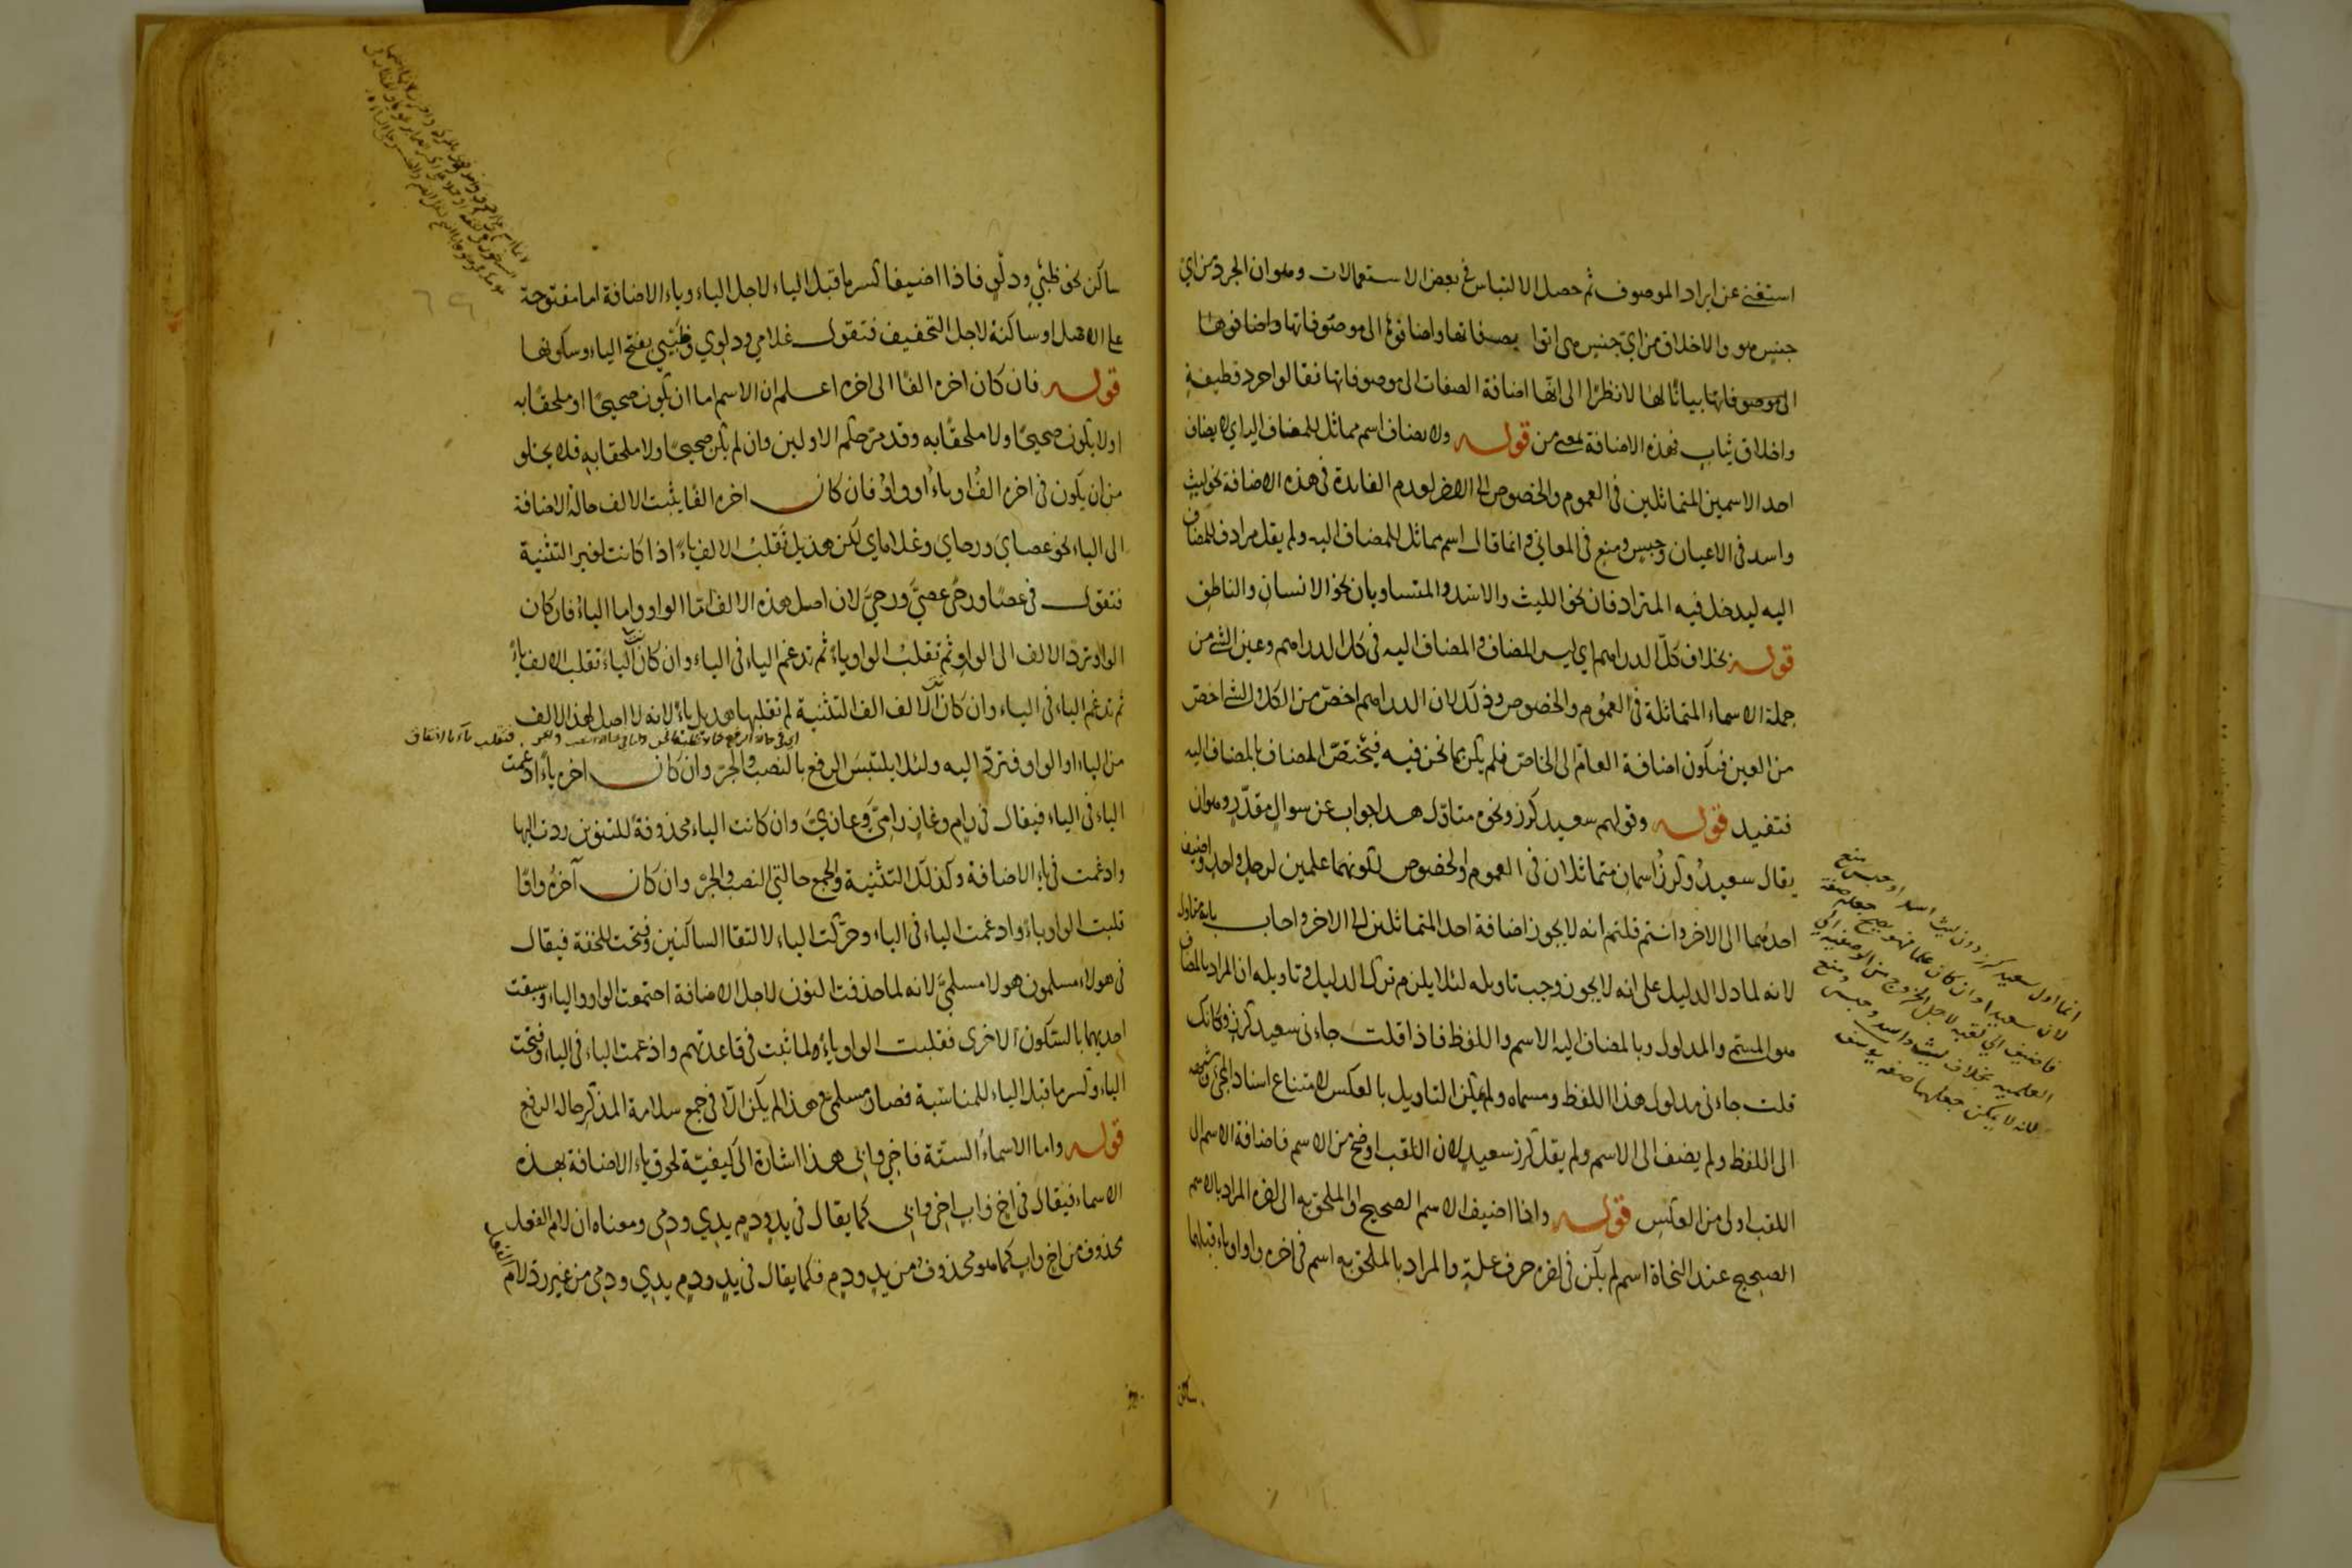 استغنى عن ايراد الموصوف ثم حصل الالتباس في بعض الاستعمالات وهو ان الجرد من اي
جنس هو والاخلاق من اي جنس هي اتوا بصفاتها واضافوها الى موصوفاتها واضافوها
الى موصوفاتها بيانًا لها لا نظرًا الى انها اضافة الصفات الى موصوفاتها فقالوا جرد قطيفةٍ
واخلاق ثيابٍ فهذه الاضافة بمعنى من قوله ولا يضاف اسم مماثل للمضاف اليه اي لا يضاف
احد الاسمين المتماثلين في العموم والخصوص الى الاخر لعدم الفايدة في هذه الاضافة نحو ليث
واسد في الاعيان وحبس ومنع في المعاني وانما قال اسم مماثل للمضاف اليه ولم يقل مرادف للمضاف
اليه ليدخل فيه المترادفان نحو الليث والاسد والمتساويان نحو الانسان والناطق
قوله بخلاف كلّ الدراهم اي ليس المضاف والمضاف اليه في كل الدراهم وعين الشئ من
جملة الاسماء المتماثلة في العموم والخصوص وذلك لان الدراهم اخصّ من الكل والشئ اخصّ
من العين فيكون اضافة العامّ الى الخاصّ فلم يكن مما نحن فيه فيختصّ المضاف بالمضاف اليه
فتفيد قوله وقولهم سعيد كرز ونحوه متأوّل هذا جواب عن سوالٍ مقدّرٍ وهو ان
يقال سعيدٌ وكرزٌ اسمان متماثلان في العموم والخصوص لكونهما علمين لرجلٍ واحدٍ واضيف
احدهما الى الاخر وانتم قلتم انه لا يجوز اضافة احد المتماثلين الى الاخر واجاب بانه متاول
لانه لما دل الدليل على انه لا يجوز وجب تاويله لئلا يلزم ترك الدليل وتاويله ان المراد بالمضاف
هو المسمّى والمدلول وبالمضاف اليه الاسم واللفظ فاذا قلت جاءنى سعيد كرزٍ وكانك
قلت جاءنى مدلول هذا اللفظ ومسماه ولم يمكن التاويل بالعكس لامتناع اسناد المجئ
الى اللفظ ولم يضف الى الاسم ولم يقل كرز سعيدٍ لان اللقب اوضح من الاسم فاضافة الاسم الى
اللقب اولى من العكس قوله واذا اضيف الاسم الصحيح او الملحق به الى اخره المراد بالاسم
الصحيح عند النحاة اسم لم يكن في اخره حرف علةٍ والمراد بالملحق به اسم في اخره واو او ياء قبلهما
ساكن
انما اول سعيد كرز دون ليث اسد او حبس منع
لان سعيدا وان كان علما فهو يصح جعله صفة
فاضيف الى لقبه لاجل الخروج من الوصفية الى
العلمية بخلاف ليث واسد وحبس ومنع
لانه لا يمكن جعلهما صفة يوسف
ساكن نحو ظبيٍ ودلوٍ فاذا اضيفا كسر ما قبل الياء لاجل الياء وياء الاضافة اما مفتوحة
على الاصل او ساكنة لاجل التخفيف فتقول غلامي ودلوي وظبيي بفتح الياء وسكونها
قوله فان كان اخره الفًا الى اخره اعلم ان الاسم اما ان يكون صحيحًا او ملحقًا به
او لا يكون صحيحًا ولا ملحقًا به وقد مرّ حكم الاولين وان لم يكن صحيحًا ولا ملحقا به فلا يخلو
من ان يكون في اخره الفٌ او ياءٌ او واوٌ فان كان اخره الفًا يثبت الالف حالة الاضافة
الى الياء نحو عصاي ورحاي وغلاماي لكن هذيل تقلب الالف ياءً اذا كانت لغير التثنية
فتقول في عصًا ورحًى عصيَّ ورحيَّ لان اصل هذه الالف امّا الواو واما الياء فان كان
الواو تردّ الالف الى الواو ثم تقلب الواو ياءً ثم تدغم الياء في الياء وان كان الياء تقلب الالف ياءً
ثم تدغم الياء في الياء وان كان الالف الف التثنية لم تقلبها هذيل ياءً لانه لا اصل لهذا الالف
من الياء او الواو فتردّ اليه ولئلا يلتبس الرفع بالنصب والجرّ وان كان اخره ياءً ادغمت
الياء في الياء فيقال في رامٍ وغازٍ راميَّ وغازيَّ وان كانت الياء محذوفة للتنوين ردت اليها
وادغمت في ياء الاضافة وكذلك التثنية والجمع حالتي النصب والجرّ وان كان آخره واوًا
قلبت الواو ياءً وادغمت الياء في الياء وحرّكت الياء لالتقا الساكنين وفتحت للخفة فيقال
في هولاء مسلمون هولا مسلميَّ لانه لما حذفت النون لاجل الاضافة اجتمعت الواو والياء وسبقت
احديهما بالسكون الاخرى فقلبت الواو ياءً لما ثبت في قاعدتهم وادغمت الياء في الياء وفتحت
الياء وكسر ما قبل الياء للمناسبة فصار مسلميَّ وهذا لم يكن الّا في جمع سلامة المذكر حالة الرفع
قوله واما الاسماء الستة فاخي وابي هذا اشارة الى كيفيّة لحوق ياء الاضافة بهذه
الاسماء فيقال في اخٍ وابٍ اخي وابي كما يقال في يدٍ ودمٍ يدي ودمي ومعناه ان لام الفعل
محذوف من اخ واب كما هو محذوف من يدٍ ودمٍ فكما يقال في يدٍ ودمٍ يدي ودمي من غير ردّ لام الفعل